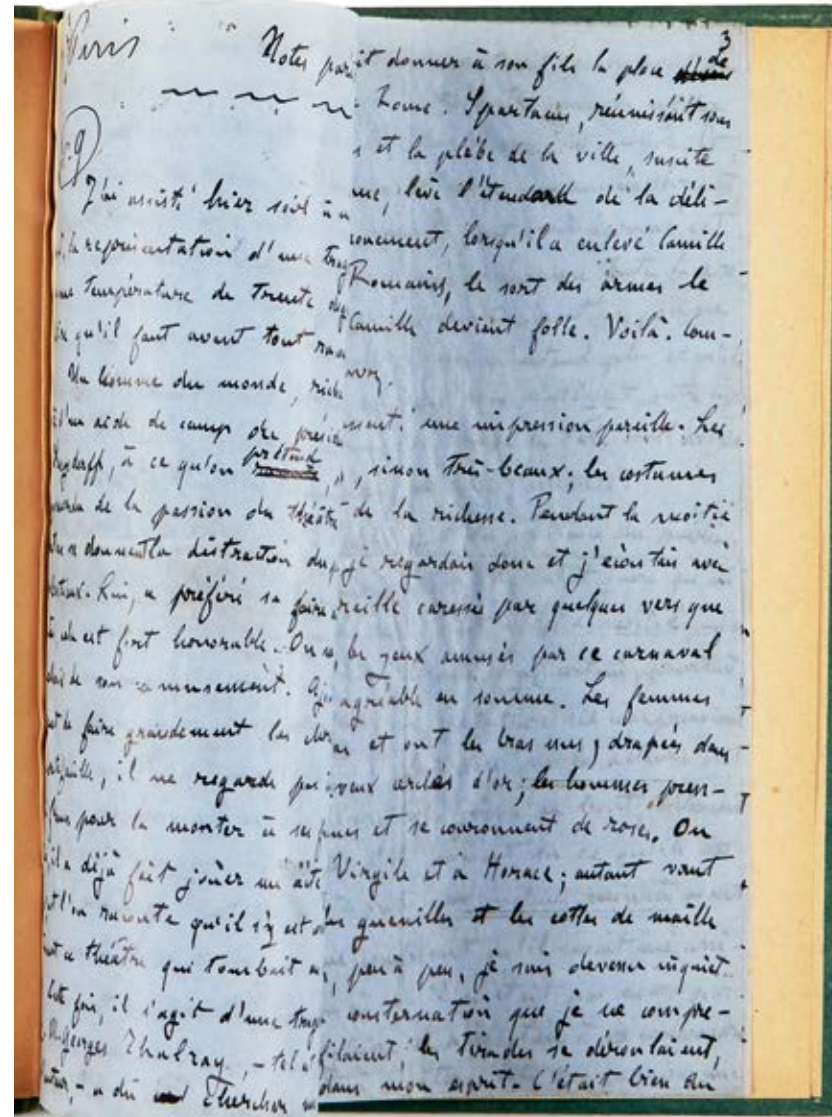 Paris
Notes pari
p. 9
J'ai assisté hier soir à u
à la représentation d'une trag
une température de trente deg
qu'il faut avant tout
Un homme du monde, rich
d'un aide de camp du prési
à ce qu'on prétend
de la passion du théâtre
donnent la distraction
lui, a préféré se faire
est fort honorable. On
de son amusement.
de faire grandement les cho
il ne regarde pas
pour la monter à ses
il a déjà fait jouer un acte
l'on raconte qu'il s'y est
ce théâtre qui tombait
Cette fois, il s'agit d'une trag
Georges Thalray, - tel
- a dû chercher
3
it donner à son fils la place de
Rome. Spartacus, réunissant sous
et la plèbe de la ville, suscite
me, lève l'étendard de la déli-
lorsqu'il a enlevé Camille
Romains, le sort des armes le
Camille devient folle. Voilà. Com-
une impression pareille. Les
sinon très-beaux; les costumes
de la richesse. Pendant la moitié
je regardais donc et j'écoutais avec
reille caressée par quelques vers que
les yeux amusés par ce carnaval
agréable en somme. Les femmes
et ont les bras nus; drapées dans
veux cerclés d'or; les hommes
et se couronnent de roses. On
Virgile et à Horace; autant vaut
les guenilles et les cottes de maille
peu à peu, je suis devenu inquiet.
consternation que je ne compre-
filaient, les tirades se déroulaient,
dans mon esprit. C'était bien du